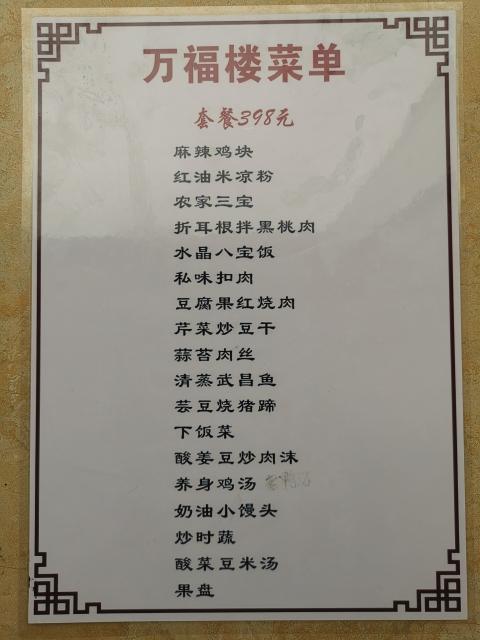 万福楼菜单
套餐398元
麻辣鸡块
红油米凉粉
农家三宝
折耳根拌黑桃肉
水晶八宝饭
私味扣肉
豆腐果红烧肉
芹菜炒豆干
蒜苔肉丝
清蒸武昌鱼
芸豆烧猪蹄
下饭菜
酸姜豆炒肉沫
养身鸡汤
奶油小馒头
炒时蔬
酸菜豆米汤
果盘